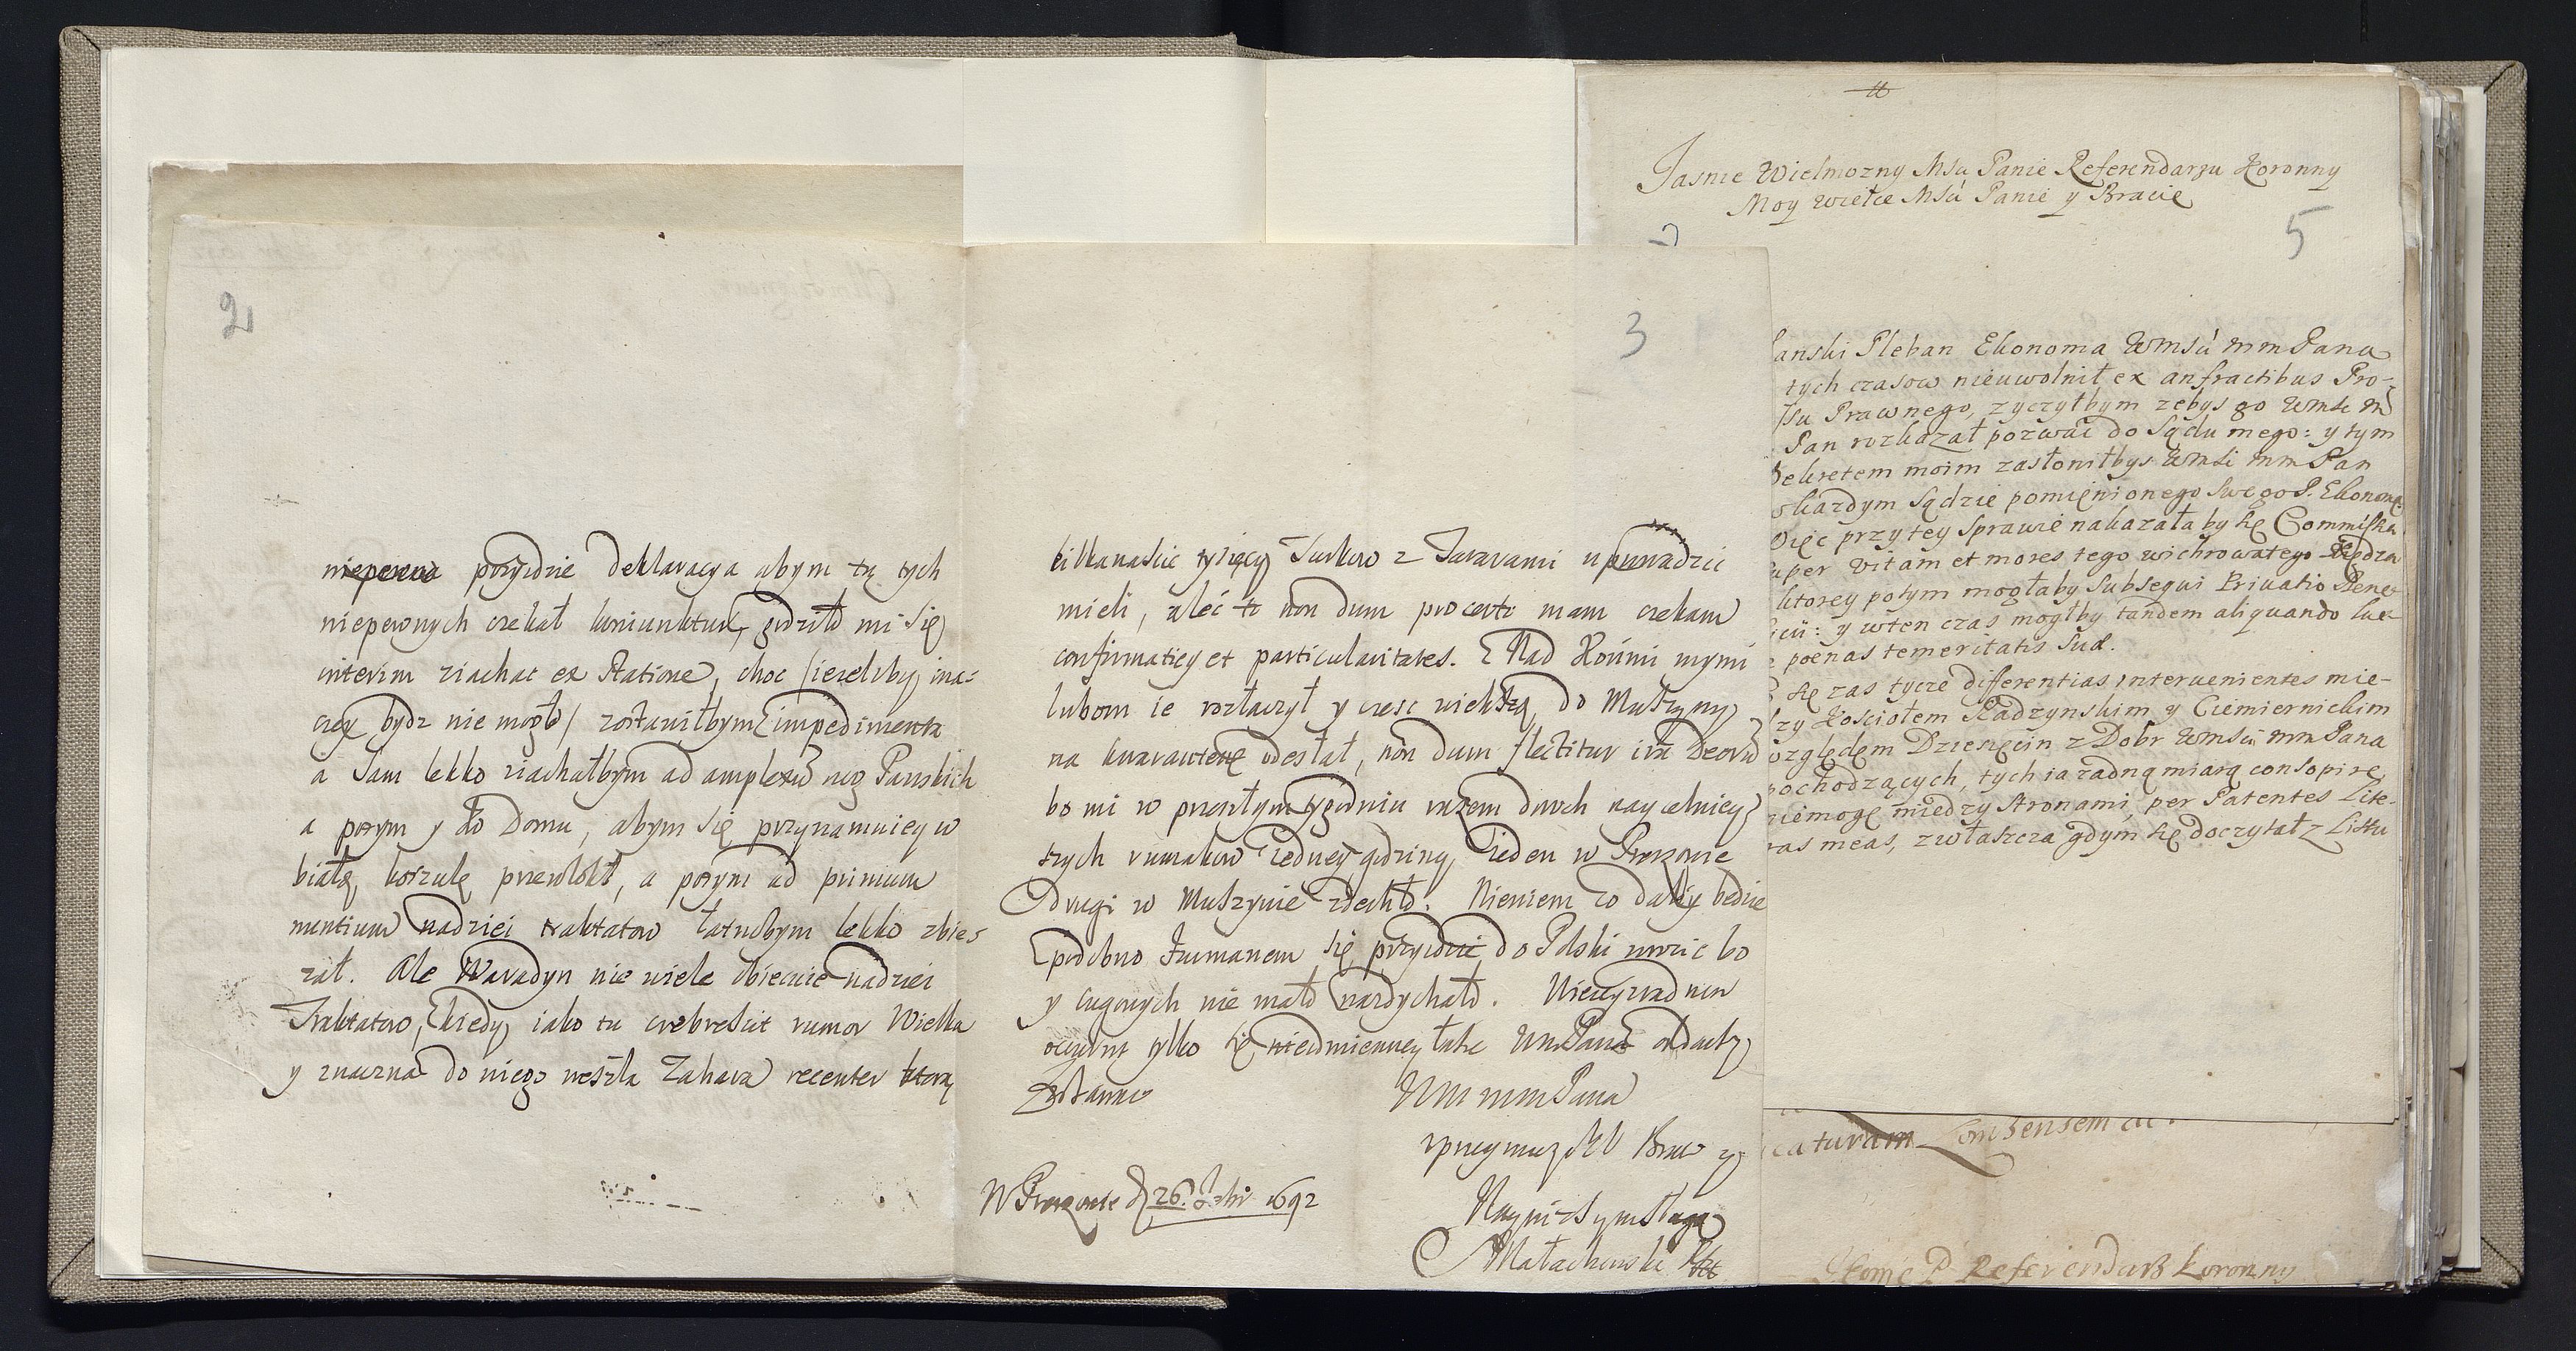 2
niepewna przyidzie deklaracya abym tą tych
niepewnych czekał koniunktur, godziło mi się
interim ziachac ex statione, choc /iezeliby ina-
czey bydz nie mogło/ zostawiłbym impedimenta
a sam lekko ziachałbym ad amplexū nog Pańskich
a potym y do Domu, abym się przynamniey w
białą koszulę przewlokł, a potym ad primum
nuntium nadziei traktatow łatwobym lekko zbie-
żał. Ale Waradyn nie wiele obiecuie nadziei
Traktatow, kiedy iako tu crebrescit rumor Wielka
y znaczna do niego weszła Zahara recenter ktorą
3
kilkanascie tysięcy Turkow z Tatarami uprowadzic
mieli, aleć to non dum pro certo mam czekam
confirmaticy et particularitates. Nad Końmi mymi
lubom ie rozłaczył y czesc wiekszą do Muszyny
na kwarantenę odesłał, non dum flectitur ira Deorū
bo mi w przeszłym tygodniu razem dwoch naycelniey-
szych rumakow iedney godziny, ieden w
Drugi w Muszynie zdechło. Niewiem co daley bedzie
podobno Furmanem się przyidzie do Polski wrocic bo
y cugowych nie mało nazdychało.
tylko się nieodmienney łasce WmPana oddawszy
zostawam
WM mm Pana
uprzeymie zyczliwym Bratem y
Nayniższym sługą
Małachowski
W d 26. 7bri 1692
Jasnie Wielmozny Msci Panie Referendarzu Koronny
Moy wielce Msci Panie y Bracie
5
anski Pleban Ekonoma WMsci mm Pana
tych czasow nieuwolnił ex anfractibus Pro-
ssu Prawnego, zyczyłbym zebys go WMsc m
Pan rozkazał pozwac do Sądu mego: y tym
Dekretem moim zasłoniłbys WMsc mm Pan
w kazdym Sądzie pomięnionego swego P. Ekonoma
Więc przy tey sprawie nakazała by się Commissia
super vitam et mores tego wichrowatego Xiędza
ktorey potym mogłaby subsequi Privatio Bene-
ficii: y wten czas mogłby tandem aliquando lue-
re poenas temeritatis suae.
się zas tycze differentias intervenientes mie-
dzy Kosciołem Radzynskim y Ciemiernickim
względem Dziesięcin z Dobr WMsci mm Pana
pochodzących, tych ia zadną miarą consopire
niemogę miedzy stronami, per Patentes Lite-
ras meas, zwłaszcza gdym się doczytał z Listu
caturam Consensem
P Referendarz Koronny